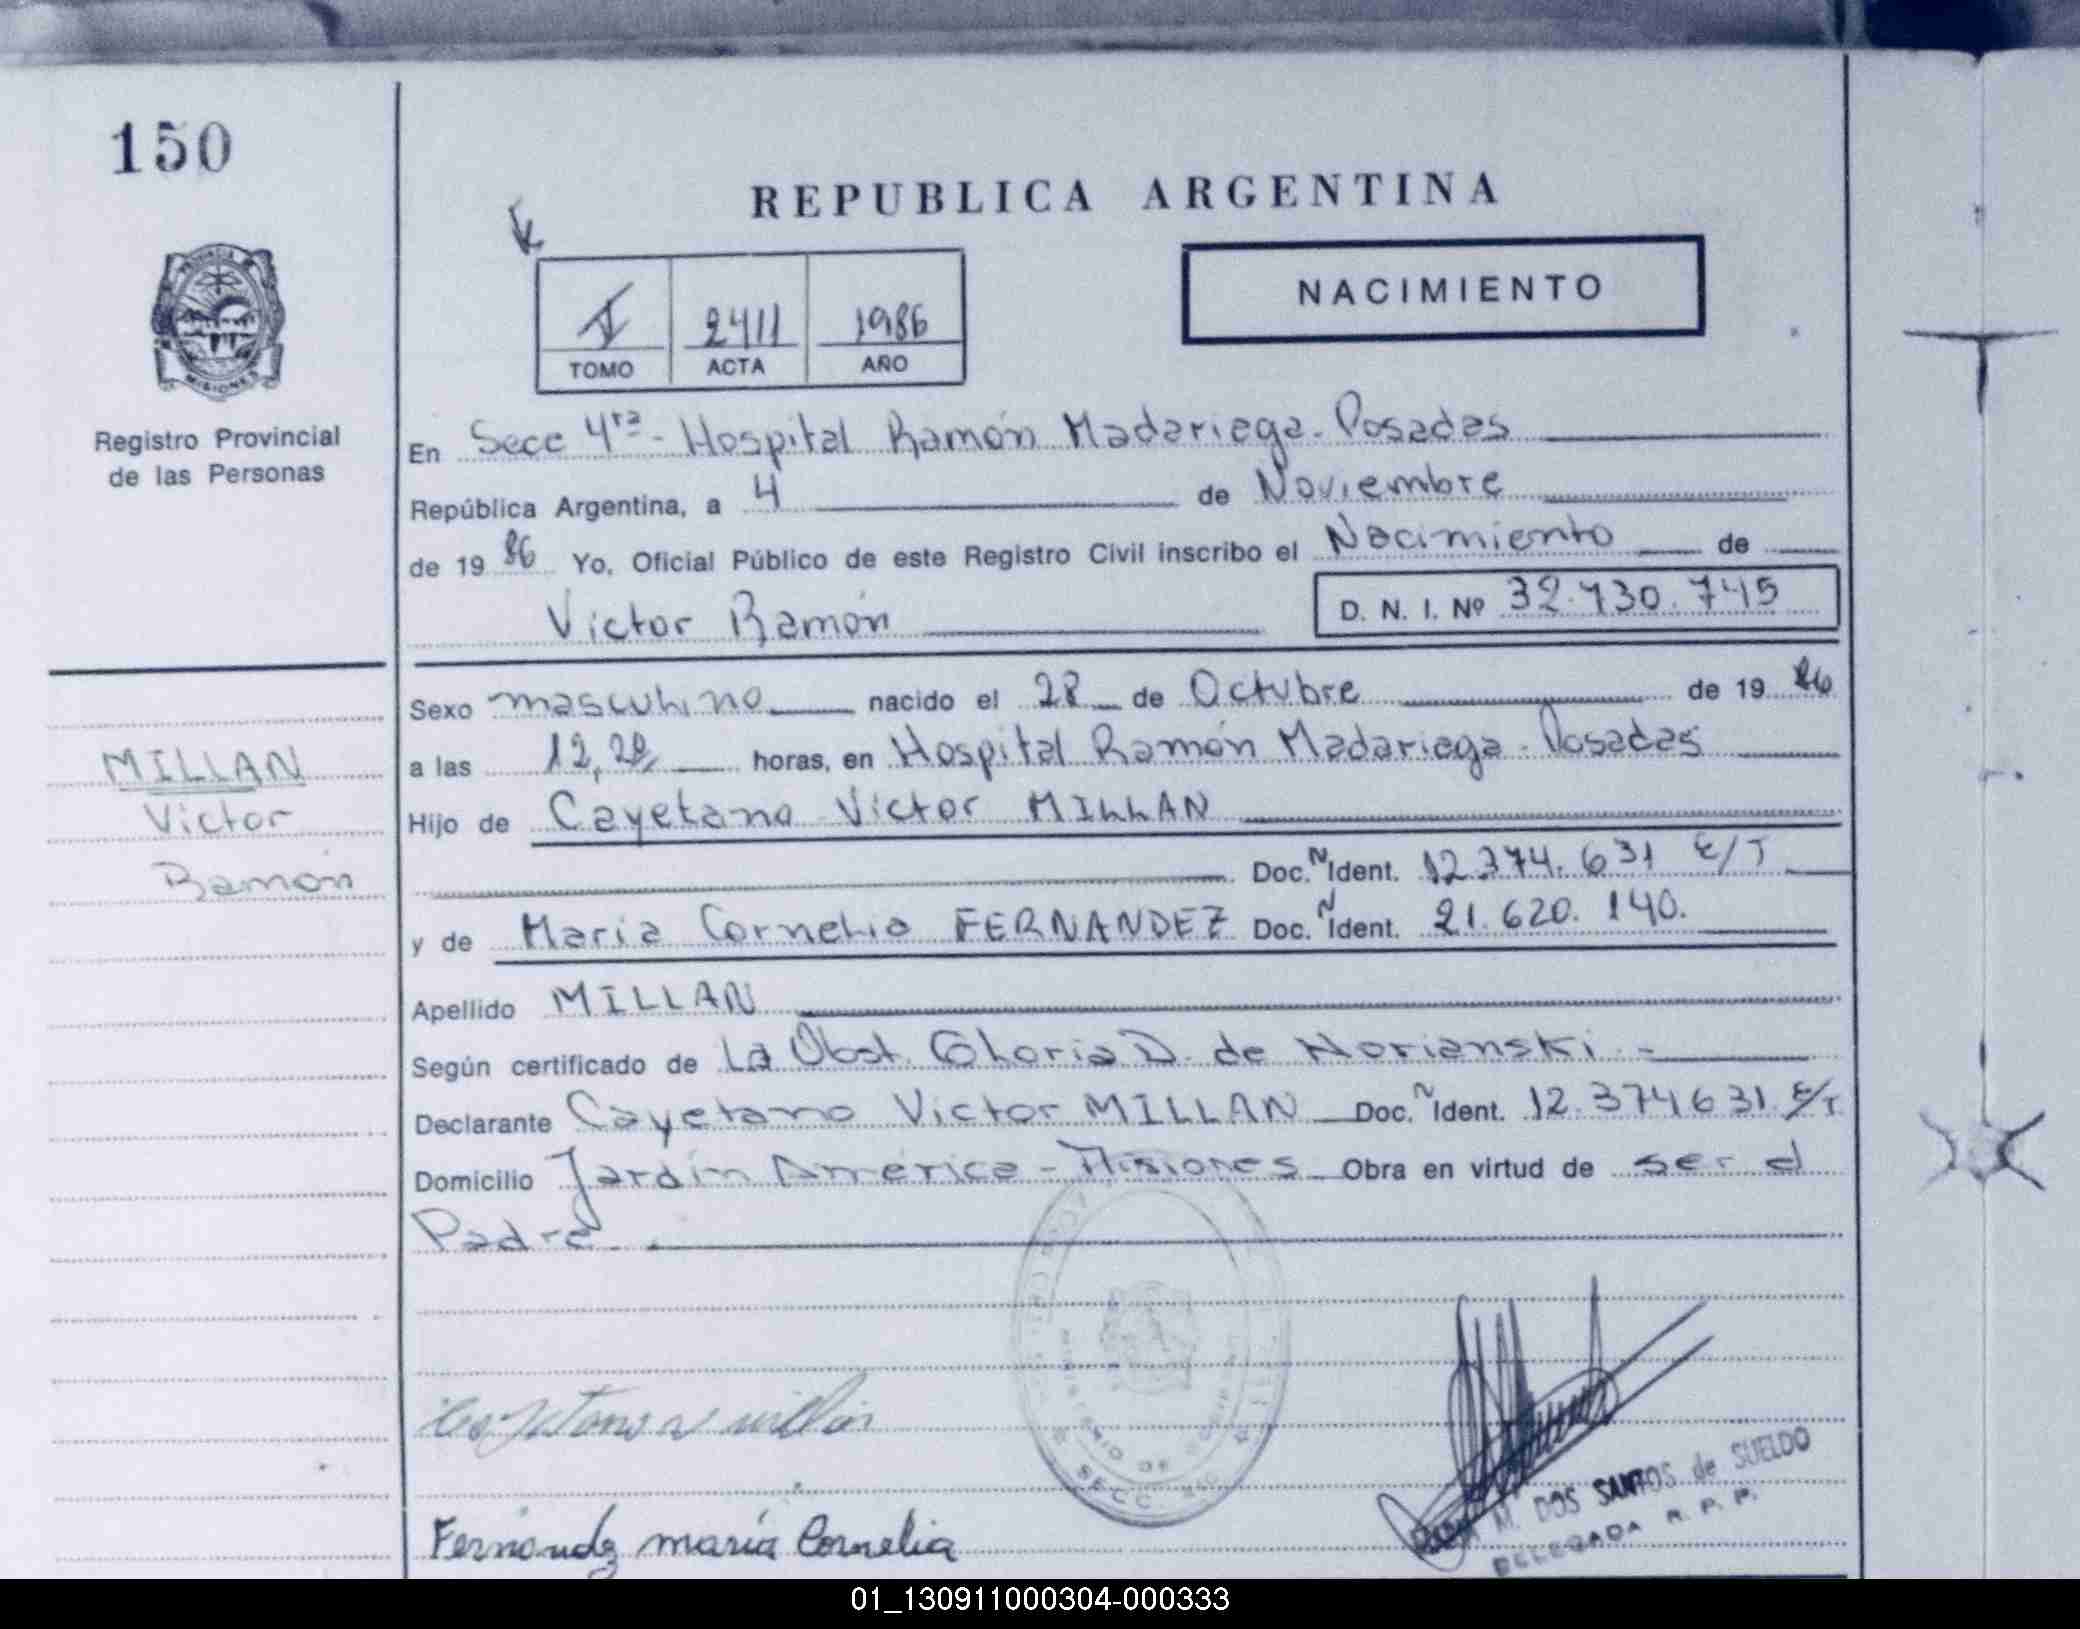 150
REPUBLICA ARGENTINA
NACIMIENTO
I 2411 1986
TOMO ACTA AÑO
PROVINCIA DE
MISIONES
Registro Provincial
de las Personas
En Secc 4ta - Hospital Ramón Madariaga - Posadas
República Argentina, a 4 de Noviembre
de 1986 Yo, Oficial Público de este Registro Civil inscribo el Nacimiento de
Victor Ramón D. N. I. Nº 32.730.745
Sexo masculino nacido el 28 de Octubre de 1986
a las 12,20 horas, en Hospital Ramón Madariaga - Posadas
Hijo de Cayetano Victor MILLAN
Doc. N Ident. 12.374.631 E/T
y de Maria Cornelia FERNANDEZ Doc. N Ident. 21.620.140.
MILLAN
Victor
Ramón
Apellido MILLAN
Según certificado de La Obst. Gloria D. de Norianski -
Declarante Cayetano Victor MILLAN Doc. N Ident. 12.374631 E/T
Domicilio Jardín América - Misiones Obra en virtud de ser el
Padre
MINISTERIO DE
SECC.
Cayetano V millan
Fernandez maría Cornelia
M. DOS SANTOS de SUELDO
DELEGADA R. P. P.
01_130911000304-000333